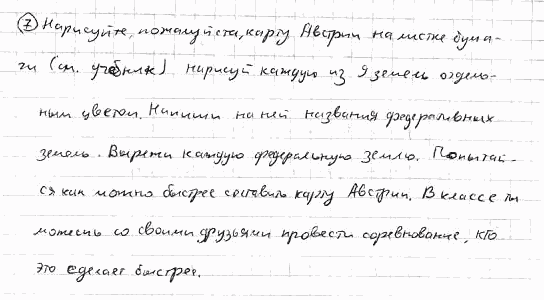 7 Нарисуйте, пожалуйста, карту Австрии на листке бума-
ги (см. учебник) нарисуй каждую из 9 земель отдель-
ным цветом. Напиши на ней названия федеральных
земель. Вырежи каждую федеральную землю. Попытай-
ся как можно быстрее составить карту Австрии. В классе ты
можешь со своими друзьями провести соревнование, кто
это сделает быстрее.